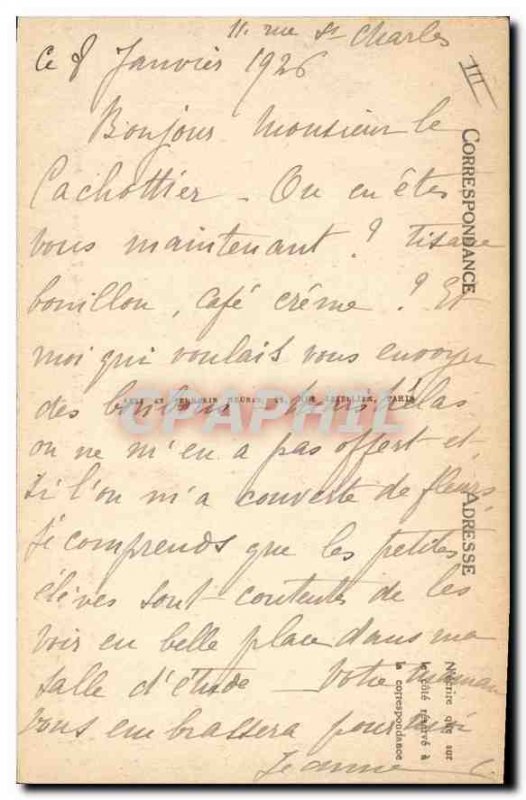 11. rue St Charles
Ce 8 Janvier 1926
III
Bonjour Monsieur le
Cachottier - Ou en êtes
vous maintenant ? tisane
bouillon, café crème ? Et
moi qui voulais vous envoyer
des bonbons - mais hélas
on ne m'en a pas offert et
si l'on m'a couverte de fleurs,
je comprends que les petites
élèves sont contentes de les
voir en belle place dans ma
salle d'étude - Votre maman
vous embrassera pour moi
Jeanne C.
CORRESPONDANCE
ADRESSE
N'écrire que sur
le côté réservé à
la correspondance
PARIS
CPAPHIL